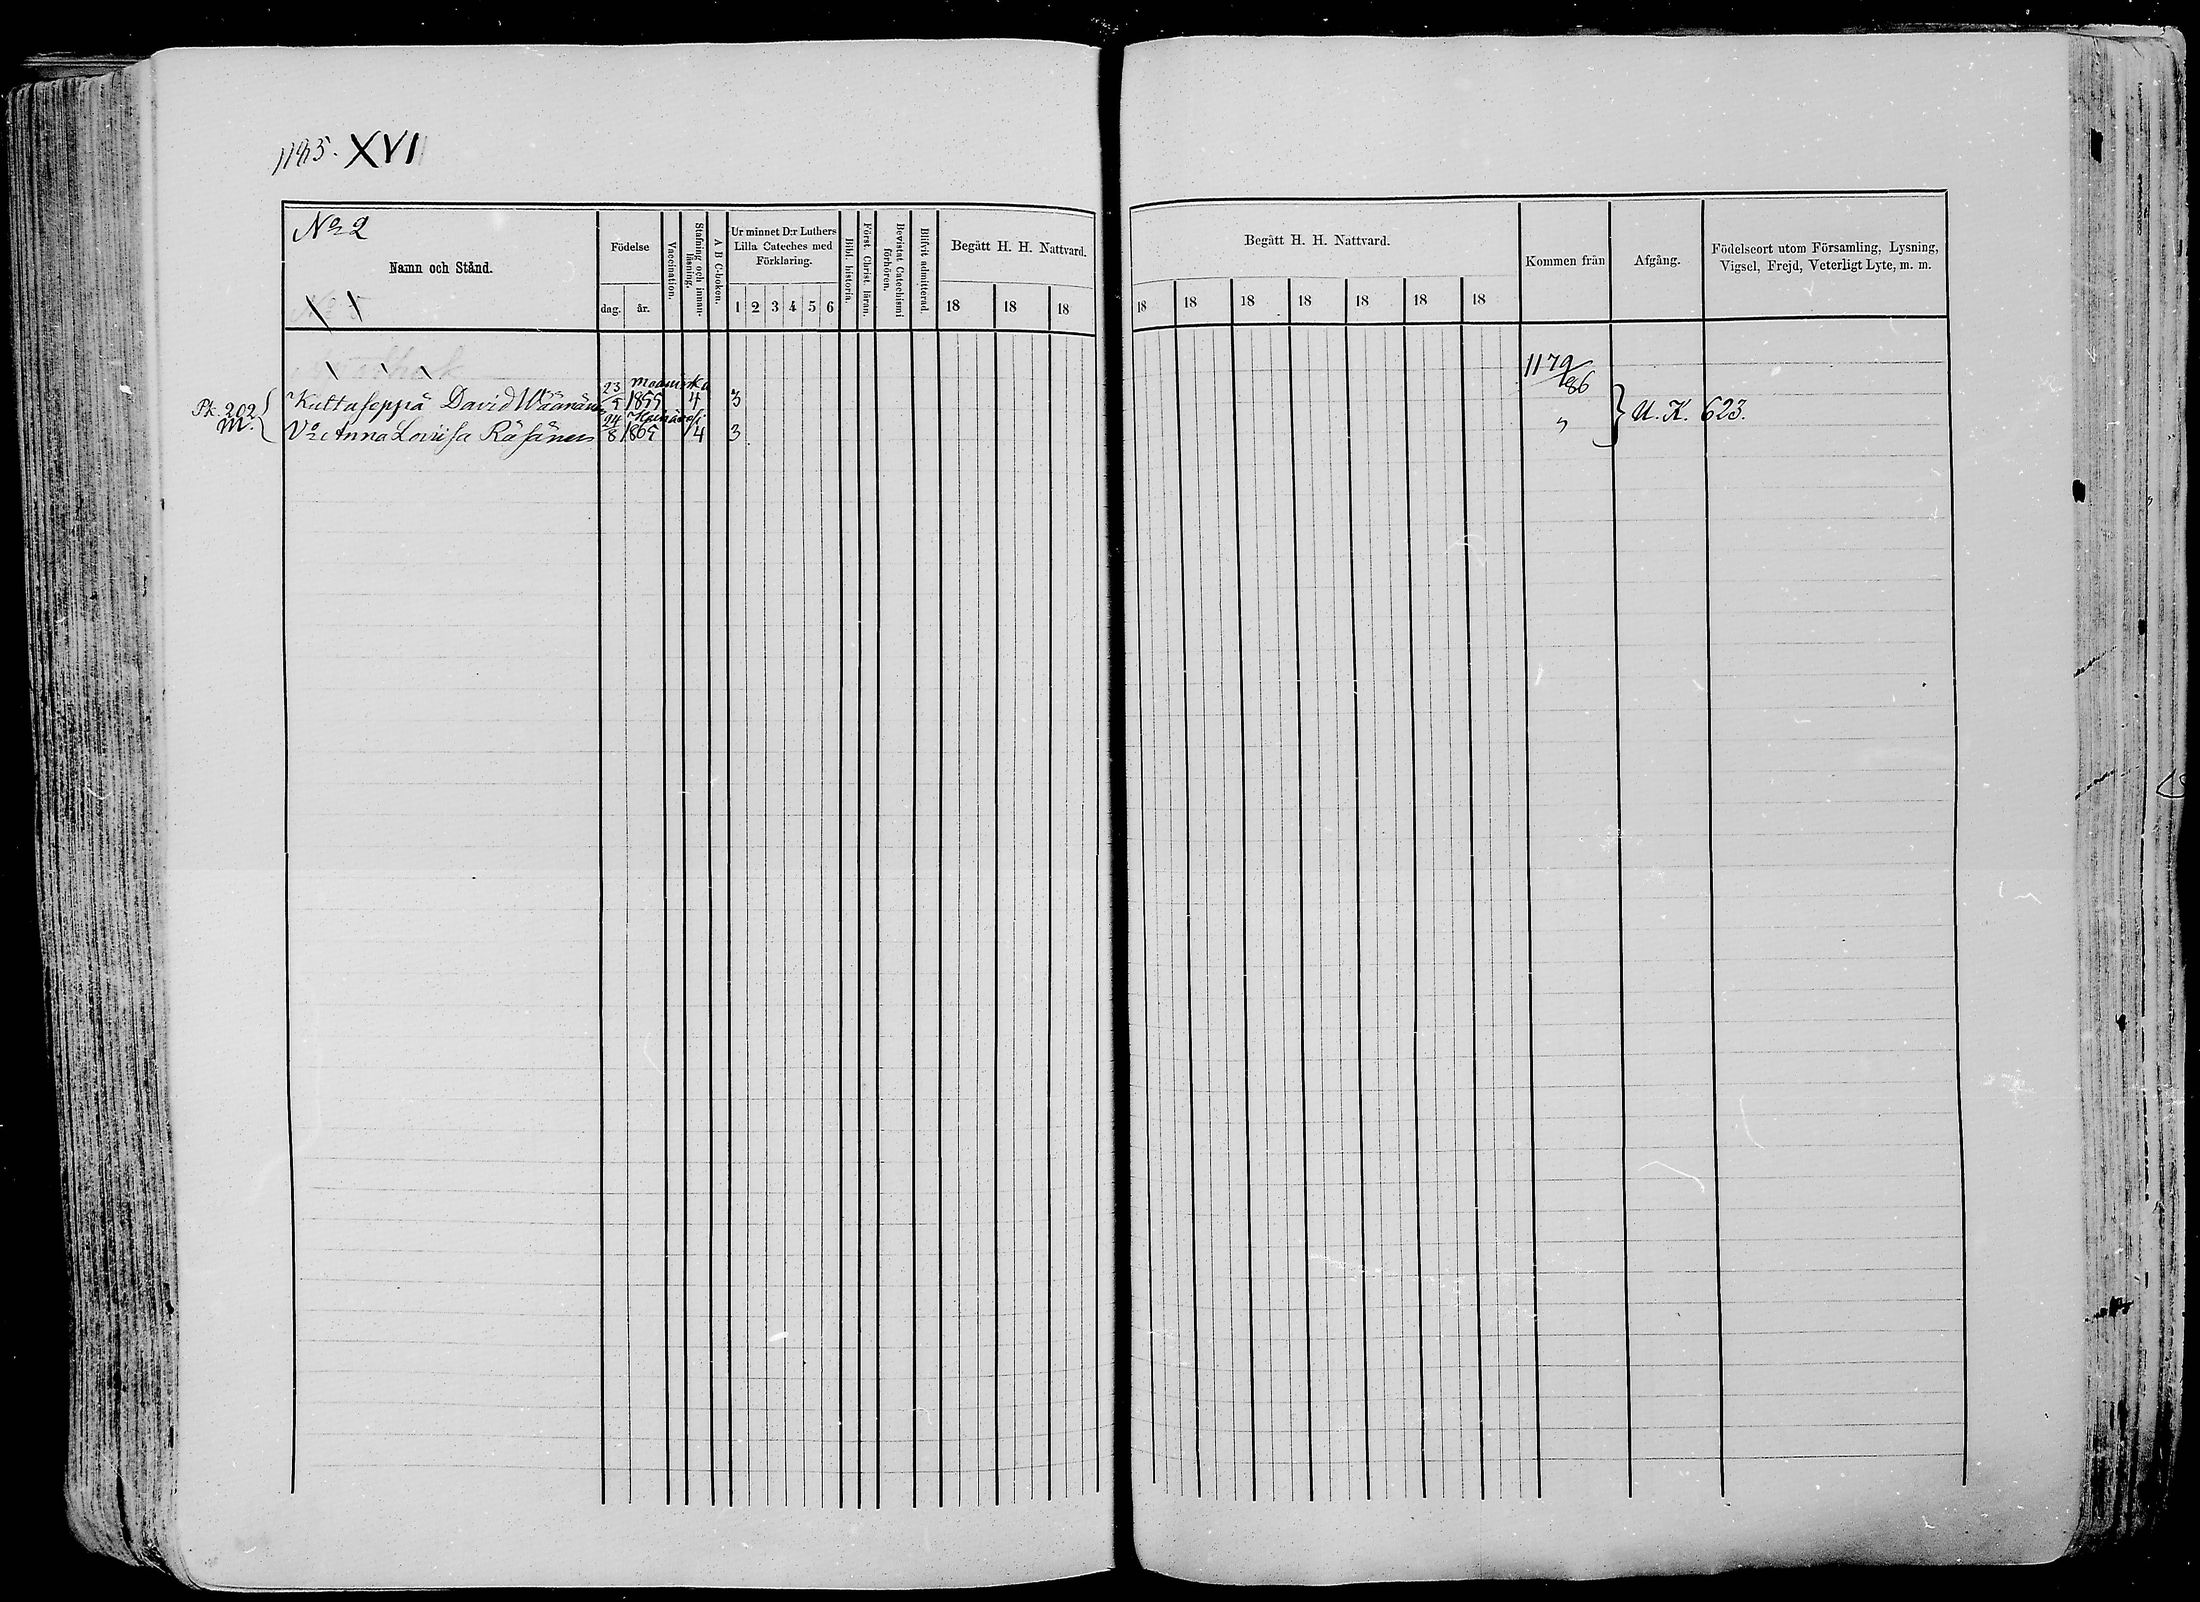 1185. XVI
No 2
Namn och Stånd.
Födelse
dag.
år.
Vaccination.
Stafning och innanläsning.
A B C-boken.
Ur minnet D:r Luthers
Lilla Cateches med
Förklaring.
1 2 3 4 5 6
Bibl. historia.
Först. Christ. läran.
Bevistat Catechismi
förhören.
Blifvit admitterad.
Begått H. H. Nattvard.
18 18 18
Begått H. H. Nattvard.
18 18 18 18 18 18 18
Kommen från
Afgång.
Födelseort utom Församling, Lysning,
Vigsel, Frejd, Veterligt Lyte, m. m.
1179/86
Maaninka
Pk. 202 Kultaseppä David Wäänänen 23/5 1855 4 3
M.
Vo Anna Lovisa Räsänen 24/8 1865 4 3 " U. K. 623.